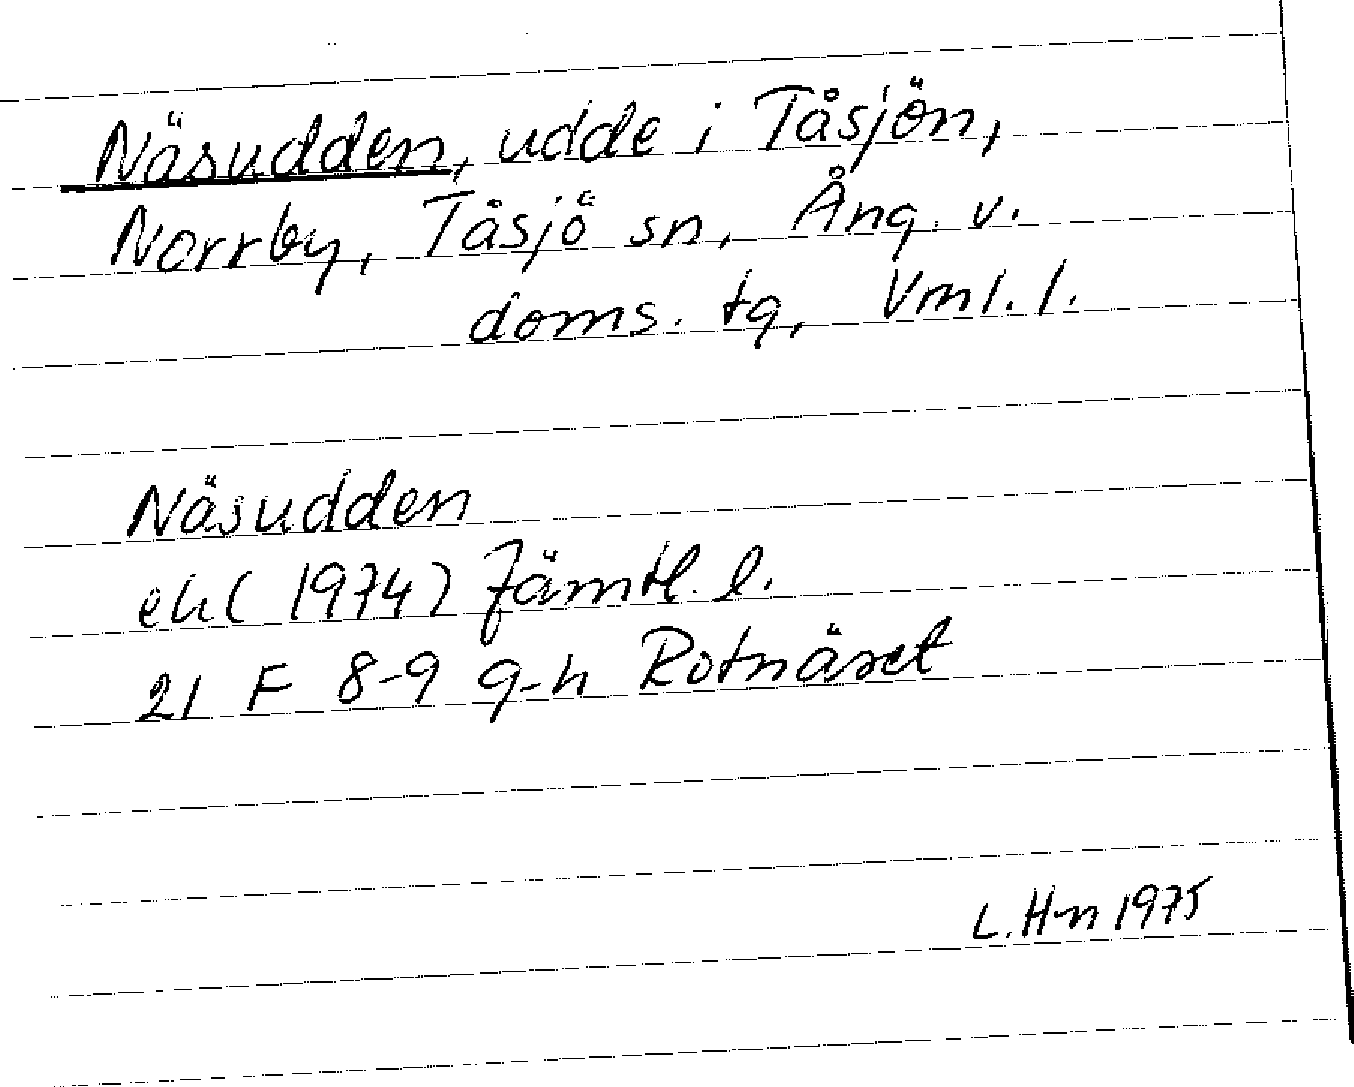 Näsudden, udde i Tåsjön,
Norrby, Tåsjö sn, Ång. v.
doms. tg, Vml. l.
Näsudden
ek (1974) Jämtl. l.
21 F 8-9 g-h Rotnäset
L. H-n 1975